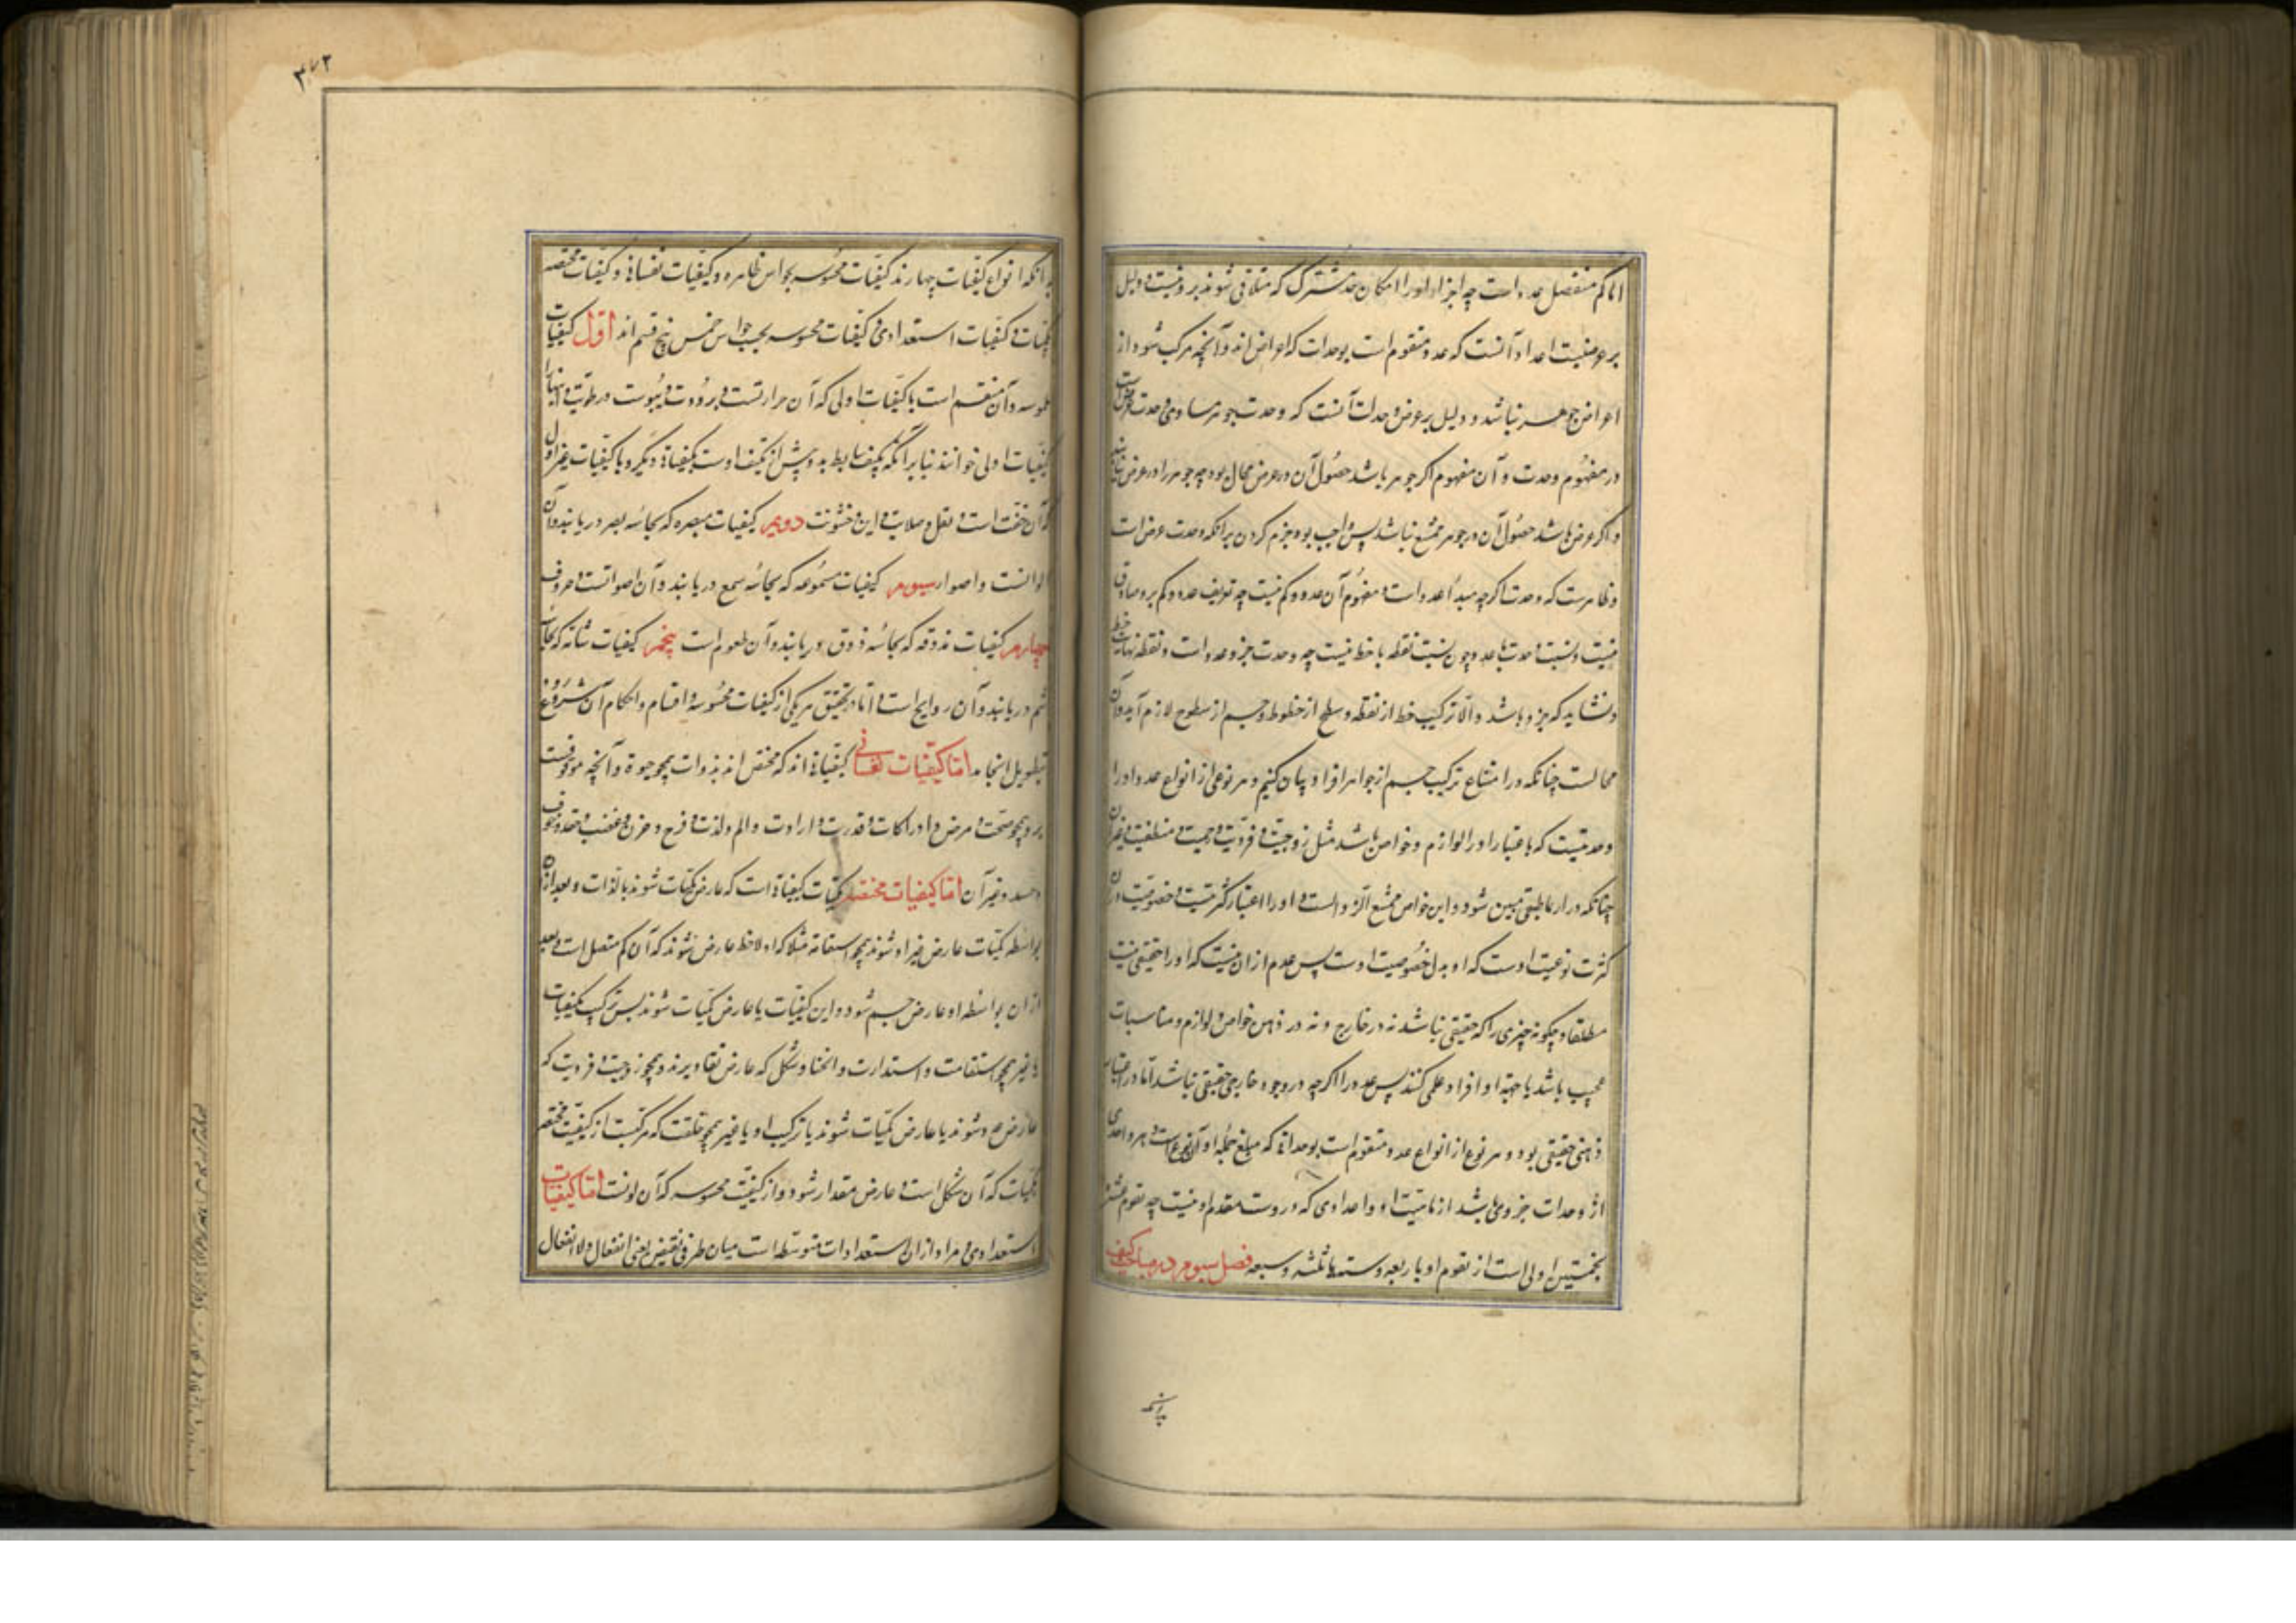 اما کم منفصل عدد است چه اجزاء او را امکان حد مشترک که متلاقی شوند برو نیست و دلیل
بر عرضیت اعداد آنست که عدد متقوم است بوحدات که اعراض اند و آنچه مرکب شود از
اعراض جوهر نباشد و دلیل بر عرض وحدات آنست که وحدت جوهر مساوی وحدت عرض است
در مفهوم وحدت و آن مفهوم اکر جوهر باشد حصول آن در عرض محال بود چه جوهر را در عرض نباشد
و اکر عرض باشد حصول آن در جوهر ممتنع نباشد پس واجب بود جزم کردن برآنکه وحدت عرض است
و ظاهرست که وحدت اکرچه مبدأ عدد است مفهوم آن عدد و کم نیست چه تعریف عدد و کم برو صادق
نیست و نسبت وحدت با عدد چون نسبت نقطه با خط نیست چه وحدت جزو عدد است و نقطه نهایت خط
و نشاید که جزو باشد و الا ترکیب خط از نقطه و سطح از خطوط و جسم از سطوح لازم آید و آن
محالست چنانکه در امتناع ترکیب جسم از جواهر افراد بیان کنیم و هر نوعی از انواع عدد او را
وحدتیست که باعتبار او را لوازم و خواص باشد مثل زوجیت و فردیت و اصمیت و منطقیت و غیر آن
چنانکه در ارثماطیقی مبین شود و این خواص ممتنع الزوالست و او را اعتبار کثرتیست و خصوصیت آن
کثرت نوعیت اوست که او بدان خصوصیت اوست پس عدم ازان نیست که او را حقیقی نیست
مطلقا و چکونه چیزی را که حقیقی نباشد نه در خارج و نه در ذهن خواص و لوازم و مناسبات
عجیب باشد یا جهة او افراد علمی کنند پس عدد را اکرچه در وجود خارجی حقیقی نباشد اما در اعتبار
ذهنی حقیقی بود و هر نوع از انواع عدد متقوم است بوحداتی که مبلغ جمله او آن نوع است و هر واحدی
از وحدات جزوی باشد از ماهیت او و اعدادی که دروست مقوم او نیست چه تقوم عشره
بخمستین اولی است از تقوم او باربعه و سته یا ثلثه و سبعه فصل سیوم در مباحث کیف
بدانکه
۳۷۲
بدانکه انواع کیفیات چهارند کیفیات محسوسه بحواس ظاهره و کیفیات نفسانی و کیفیات مختصه
بکمیات و کیفیات استعدادی و کیفیات محسوسه بحسب حواس خمس پنج قسم اند اول کیفیات
ملموسه و آن منقسم است با کیفیات اولی که آن حرارتست و برودت و یبوست و رطوبت و اینها را
کیفیات اولی خوانند بنابر آنکه تکیف بسایط بدو پیش از تکیف اوست بکیفیاتی دیکر و با کیفیات غیر اول
که آن خفت است و ثقل و صلابت و لین و خشونت دویم کیفیات مبصره که بحاسه بصر دریابند و آن
الوانست و اضوا سیوم کیفیات مسموعه که بحاسه سمع دریابند و آن اصواتست و حروف
چهارم کیفیات مذوقه که بحاسه ذوق دریابند و آن طعوم است پنجم کیفیات شامه که بحاسه
شم دریابند و آن روایح است اما در تحقیق هریکی از کیفیات محسوسه و اقسام و احکام آن شروع
بتطویل انجامد اما کیفیات نفسانی کیفیاتی اند که مختص اند بذوات همچو حیوة و آنچه موقوفست
برو همچو صحت و مرض و ادراکات و قدرت و ارادت و الم و لذت و فرح و حزن و غضب و حقد و خوف
و حسد و غیر آن اما کیفیات مختصه بکمیات کیفیاتی است که عارض کمیات شوند بالذات و بعد ازان
بواسطه کمیات عارض غیر او شوند همچو استقامة مثلا که اولا خط عارض شوند که آن کم متصل است و بعد
ازان بواسطه او عارض جسم شود و این کیفیات یا عارض کمیات شوند بی ترکیب بکیفیات
با غیر همچو استقامت و استدارت و انحنا و شکل که عارض مقادیرند و همچو زوجیت و فردیت که
عارض عدد شوند یا عارض کمیات شوند با ترکیب او با غیر همچو خلقت که مرکبست از کیفیت مختصه
بکمیات که آن شکل است و عارض مقدار شود و از کیفیت محسوسه که آن لونست اما کیفیات
استعدادی و مراد ازان استعدادات متوسطه است میان طرفی نقیض یعنی انفعال و لا انفعال